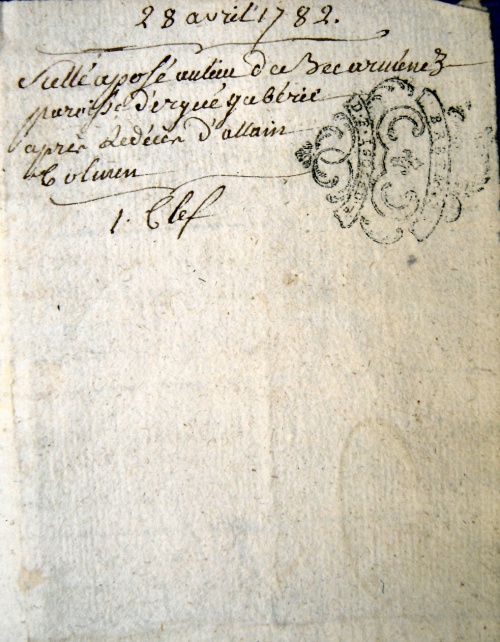 28 avril 1782.
Sellé aposé aulieu de Becarménez
paroisse d'ergué gaberic
après ledécès d'allain
1. Clef